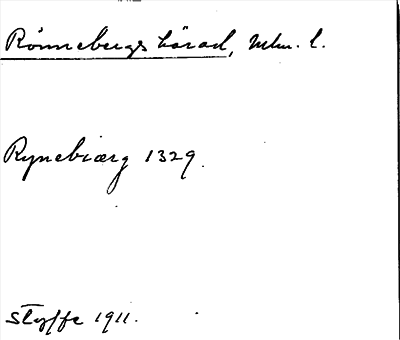 Rönnebergs härad, Mlm. l.
Rynebiærg 1329.
Styffe 1911.